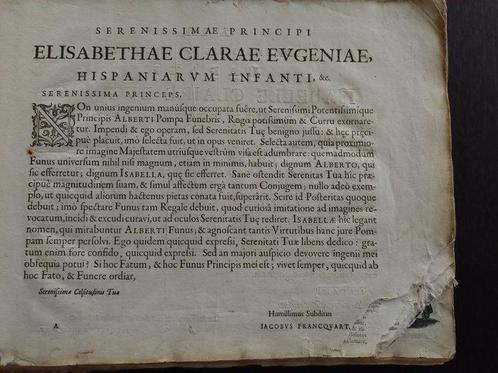 SERENISSIMAE PRINCIPI
ELISABETHAE CLARAE EVGENIAE,
HISPANIARVM INFANTI, &c.
SERENISSIMA PRINCEPS.
NOn unius ingenium manúsque occupata fuêre, ut Serenissimi Potentissimique
Principis ALBERTI Pompa Funebris, Rogo potissimum & Curru exornare-
tur. Impendi & ego operam, sed Serenitatis Tuę benigno jussu: & hęc pręci-
puè placuit, imò selecta fuit, ut in opus veniret. Selecta autem, quia proximio-
re imagine Majestatem utriusque vestrûm visa est adumbrare: quemadmodum
Funus universum nihil nisi magnum, etiam in minimis, habuit; dignum ALBERTO, qui
sic efferretur; dignum ISABELLA, quę sic efferret. Sanè ostendit Serenitas Tua hîc præ-
cipuè magnitudinem suam, & simul affectum ergà tantum Conjugem; nullo adeò exem-
plo, ut quicquid aliorum hactenus pietas conata fuit, superârit. Scire id Posteritas quoque
debuit; imò spectare Funus tam Regale debuit, quod curiosâ imitatione ad imagines re-
vocatum, incidi & excudi curavi, ut ad oculos Serenitatis Tuę rediret. ISABELLÆ hîc legant
nomen, qui mirabuntur ALBERTI Funus; & agnoscant tantis Virtutibus hanc jure Pom-
pam semper persolvi. Ego quidem quicquid expressi, Serenitati Tuæ libens dedico: gra-
tum enim fore confido, quicquid expressi. Sed an majori auspicio devovere ingenii mei
obsequia potui? Si hoc Fatum, & hoc Funus Principis mei est; vivet semper, quicquid ab
hoc Fato, & Funere ordiar,
Serenissimæ Celsitudinis Tuæ
Humillimus Subditus
A. IACOBVS FRANCQVART.